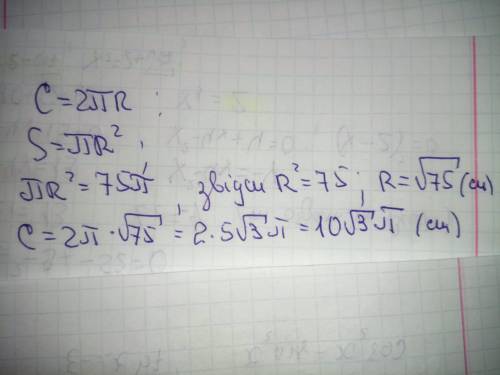 C=2πR ;
S=πR² ;
πR²=75π, звідси R²=75; R=√75 (см)
C=2π·√75 = 2·5√3π = 10√3π (см)